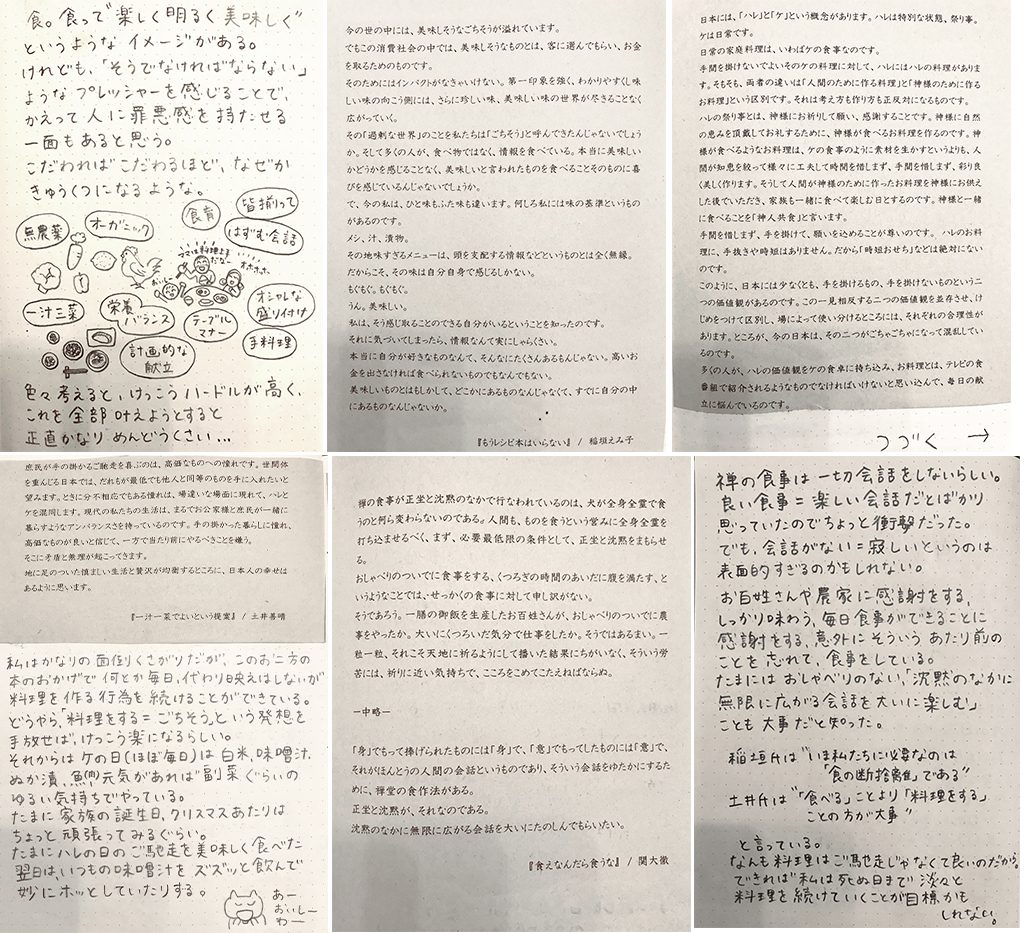 食。食って楽しく明るく美味しぐ
というようなイメージがある。
けれども、「そうでなければならない」
ようなプレッシャーを感じることで、
かえって人に罪悪感を持たせる
一面もあると思う。
こだわればこだわるほど、なぜか
きゅうくつになるような。
無農薬
オーガニック
食育
皆揃って
はずむ会話
ママは料理上手
だなー
オホホホ…
おいしー
一汁三菜
栄養
バランス
テーブル
マナー
オシャレな
盛り付け
手料理
計画的な
献立
色々考えると、けっこうハードルが高く、
これを全部叶えようとすると
正直かなりめんどうくさい…
今の世の中には、美味しそうなごちそうが溢れています。
でもこの消費社会の中では、美味しそうなものとは、客に選んでもらい、お金
を取るためのものです。
そのためにはインパクトがなきゃいけない。第一印象を強く、わかりやすく味
しい味の向こう側には、さらに珍しい味、美味しい味の世界が尽きることなく
広がっていく。
その「過剰な世界」のことを私たちは「ごちそう」と呼んできたんじゃないでしょう
か。そして多くの人が、食べ物ではなく、情報を食べている。本当に美味しい
かどうかを感じることなく、美味しいと言われたものを食べることそのものに喜
びを感じているんじゃないでしょうか。
で、今の私は、ひと味もふた味も違います。何しろ私には味の基準というもの
があるのです。
メシ、汁、漬物。
その地味すぎるメニューは、頭を支配する情報などというものとは全く無縁。
だからこそ、その味は自分自身で感じるしかない。
もぐもぐ。もぐもぐ。
うん。美味しい。
私は、そう感じ取ることのできる自分がいるということを知ったのです。
それに気づいてしまったら、情報なんて実にしゃらくさい。
本当に自分が好きなものなんて、そんなにたくさんあるもんじゃない。高いお
金を出さなければ食べられないものでもなんでもない。
美味しいものとはもしかして、どこかにあるものなんじゃなくて、すでに自分の中
にあるものなんじゃないか。
『もうレシピ本はいらない』 / 稲垣えみ子
日本には、「ハレ」と「ケ」という概念があります。ハレは特別な状態、祭り事。
ケは日常です。
日常の家庭料理は、いわばケの食事なのです。
手間を掛けないでよいそのケの料理に対して、ハレにはハレの料理がありま
す。そもそも、両者の違いは「人間のために作る料理」と「神様のために作る
お料理」という区別です。それは考え方も作り方も正反対になるものです。
ハレの祭り事とは、神様にお祈りして願い、感謝することです。神様に自然
の恵みを頂戴してお礼するために、神様が食べるお料理を作るのです。神
様が食べるようなお料理は、ケの食事のように素材を生かすというよりも、人
間が知恵を絞って様々に工夫して時間を惜しまず、手間を惜しまず、彩り良
く美しく作ります。そうして人間が神様のために作ったお料理を神様にお供え
した後でいただき、家族も一緒に食べて楽しむ日とするのです。神様と一緒
に食べることを「神人共食」と言います。
手間を惜しまず、手を掛けて、願いを込めることが尊いのです。 ハレのお料
理に、手抜きや時短はありません。だから「時短おせち」などは絶対にない
のです。
このように、日本には少なくとも、手を掛けるもの、手を掛けないものという二
つの価値観があるのです。この一見相反する二つの価値観を並存させ、け
じめをつけて区別し、場によって使い分けるところには、それぞれの合理性が
あります。ところが、今の日本は、その二つがごちゃごちゃになって混乱してい
るのです。
多くの人が、ハレの価値観をケの食卓に持ち込み、お料理とは、テレビの食
番組で紹介されるようなものでなければいけないと思い込んで、毎日の献
立に悩んでいるのです。
つづく →
庶民が手の掛かるご馳走を喜ぶのは、高価なものへの憧れです。世間体
を重んじる日本では、だれもが最低でも他人と同等のものを手に入れたいと
望みます。ときに分不相応でもある憧れは、場違いな場面に現れて、ハレと
ケを混同します。現代の私たちの生活は、まるでお公家様と庶民が一緒に
暮らすようなアンバランスさを持っているのです。手の掛かった暮らしに憧れ、
高価なものが良いと信じて、一方で当たり前にやるべきことを嫌う。
そこに矛盾と無理が起こってきます。
地に足のついた慎ましい生活と贅沢が均衡するところに、日本人の幸せは
あるように思います。
『一汁一菜でよいという提案』 / 土井善晴
私はかなりの面倒くさがりだが、このお二方の
本のおかげで何とか毎日、代わり映えはしないが
料理を作る行為を続けることができている。
どうやら、「料理をする=ごちそう」という発想を
手放せば、けっこう楽になるらしい。
それからはケの日(ほぼ毎日)は白米、味噌汁、
ぬか漬、魚肉、元気があれば副菜ぐらいの
ゆるい気持ちでやっている。
たまに家族の誕生日、クリスマスあたりは
ちょっと頑張ってみるぐらい。
たまにハレの日のご馳走を美味しく食べた
翌日は、いつもの味噌汁をズズッと飲んで
妙にホッとしていたりする。
あー
おいしー
わー
禅の食事が正坐と沈黙のなかで行なわれているのは、犬が全身全霊で食
うのと何ら変わらないのである。人間も、ものを食うという営みに全身全霊を
打ち込ませるべく、まず、必要最低限の条件として、正坐と沈黙をまもらせ
る。
おしゃべりのついでに食事をする、くつろぎの時間のあいだに腹を満たす、と
いうようなことでは、せっかくの食事に対して申し訳がない。
そうであろう。一膳の御飯を生産したお百姓さんが、おしゃべりのついでに農
事をやったか。大いにくつろいだ気分で仕事をしたか。そうではあるまい。一
粒一粒、それこそ天地に祈るようにして播いた結果にちがいなく、そういう労
苦には、祈りに近い気持ちで、こころをこめてこたえねばならぬ。
―中略―
「身」でもって捧げられたものには「身」で、「意」でもってしたものには「意」で、
それがほんとうの人間の会話というものであり、そういう会話をゆたかにするた
めに、禅堂の食作法がある。
正坐と沈黙が、それなのである。
沈黙のなかに無限に広がる会話を大いにたのしんでもらいたい。
『食えなんだら食うな』 / 関大徹
禅の食事は一切会話をしないらしい。
良い食事=楽しい会話だとばかり
思っていたのでちょっと衝撃だった。
でも、会話がない=寂しいというのは
表面的すぎるのかもしれない。
お百姓さんや農家に感謝をする、
しっかり味わう、毎日食事ができることに
感謝をする、意外にそういうあたり前の
ことを忘れて、食事をしている。
たまにはおしゃべりのない、「沈黙のなかに
無限に広がる会話を大いに楽しむ」
ことも大事だと知った。
稲垣氏は"いま私たちに必要なのは
「食の断捨離」である"
土井氏は"「食べる」ことより「料理をする」
ことの方が大事"
と言っている。
なんも料理はご馳走じゃなくて良いのだから。
できれば私は死ぬ日まで淡々と
料理を続けていくことが目標かも
しれない。